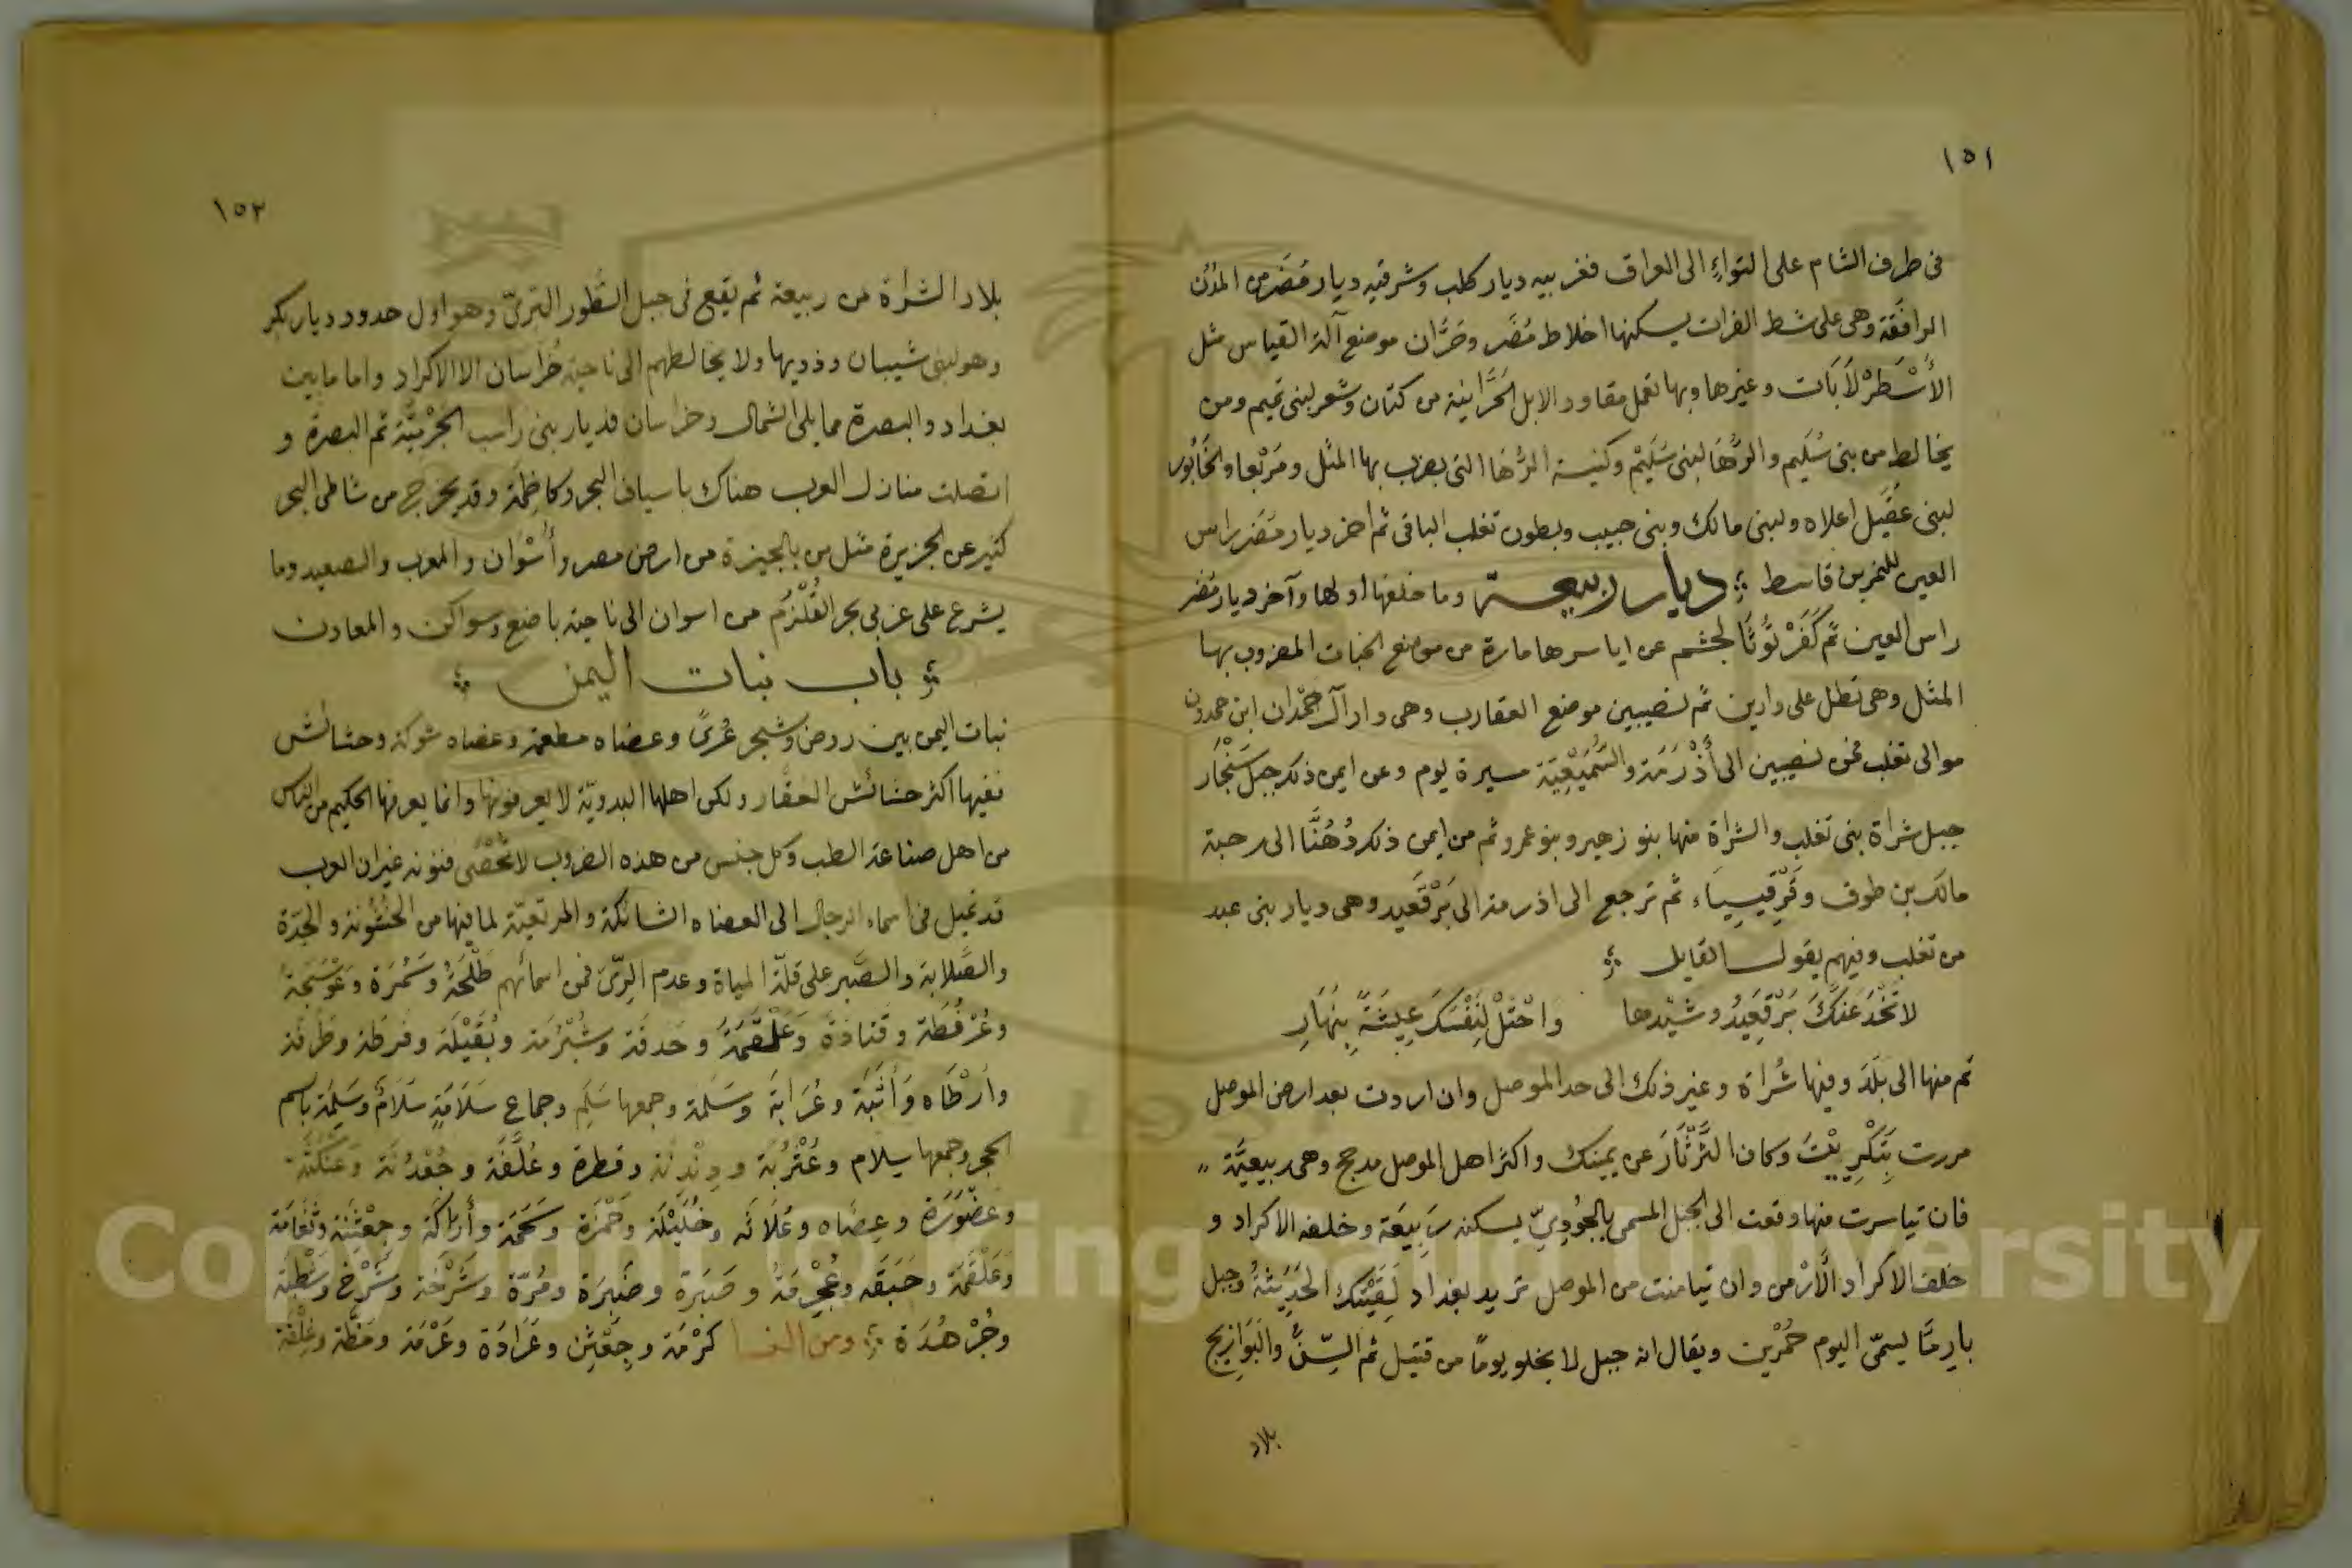 ١٥١
فى طرف الشام على التواءٍ الى العراق فغربيه ديار كلب وشرقيه ديار مُضَر من المدُن
الرافقَة وهى على شط الفرات يسكنها اخلاط مُضَر وحَرَّان موضع آلة القياس مثل
الأسْطَرْلَابَات وغيرها وبها تعمل مقاود الابل الحَرَّانية من كتان وشعر لبنى تميم ومن
يخالط من بنى سُلَيم والرُّهَا لبنى سُلَيْم وكنيسة الرُّهَا التى يضرب بها المثل ومَرْبعا والخَابُور
لبنى عُقَيل اعلاه ولبنى مالك وبنى حبيب وبطون تغلب الباقى ثم اخر ديار مُضَر راس
العين للنمر بن قاسط ؞ ديار ربيعة وما خلفها اولها وآخر ديار مُضر
راس العين ثم كَفَرْتُوثَا لجشم عن اياسرها ماردة من مواضع الجنات المضروب بها
المثل وهى تطل على دارين ثم نصيبين موضع العقارب وهى دار آل حَمْدان ابن حمدون
موالى تغلب فمن نصيبين الى أذْرَمَة والسُّمَيْعِيَّة مسيرة يوم وعن ايمن ذلك جبل سِنْجَار
جبل شراة بنى تغلب والشراة منها بنو زهير وبنو عمرو ثم من ايمن ذلك دُهُنَّا الى رحبة
مالك بن طوق وقَرْقِيسِيَاء ثم ترجع الى اذرمة الى بَرْقَعيد وهى ديار بنى عبد
من تغلب وفيهم يقول القايل ؞
لا تَخْدَعَنكَ بَرْقَعِيدُ وشَيْدها   وَاحْتَلْ لِنَفْسَكَ عِيشَةً بِنَهَارِ
ثم منها الى بلَد وفيها شُراة وغير ذلك الى حد الموصل وان اردت بعد ارض الموصل
مررت بِتَكْرِيْتَ وكان الثَّرْثَارَ عن يمينك واكثر اهل الموصل مدحج وهى ربيعيَّة "
فان تياسرت منها وقعت الى الجبل المسمى بالجُودِىّ يسكنه رَبِيعَة وخلفه الاكراد و
خلف الاكراد الأرْمن وان تيامنت من الموصل تريد بغداد لَقِيَتْك الحَدِيثَةُ وجبل
بارِمَّا يسمّى اليوم حُمْرين ويقال انه جبل لا يخلو يومًا من قتيل ثم السِّنُّ والبَوَازِيج
بلاد
١٥٢
بلاد الشراة من ربيعة ثم يقع فى جبل الطُّور البَرىّ وهو اول حدود ديار بكر
وهو لبنى شيبان وذويها ولا يخالطهم الى ناحية خُرَاسان الا الاكراد واما ما بين
بغداد والبصرة مما يلى الشمال وخراسان فديار بنى راسب الجَرْمِيَّة ثم البصرة و
اتصلت منازل العرب هناك باسياف البحر وكاظِمَة وقد يخرج من شاطى البحر
كثير عن الجزيرة مثل من بالجيزة من ارض مصر وأُسْوان والمعرب والصعيد وما
يشرع على غربى بحر القُلْزُم من اسوان الى ناحية باضع وسواكن والمعادن
؞ باب نبات اليمن ؞
نبات اليمن بين روض وشجر عُرىً وعضاه مطعمة وعضاه شوكة وحشائش
ففيها اكثر حشائش العقّار ولكن اهلها البدويّة لا يعرفونها وانما يعرفها الحكيم من الناس
من اهل صناعة الطب وكل جنس من هذه الضروب لا تُحْصَى فنونه غير ان العرب
قد تميل فى اسماء الرجال الى العضاه الشائكة والمرتعيّة لما فيها من الخشونة والحِدّة
والصَّلابة والصَّبر على قلّة المياة وعدم الرِّىّ فمن اسمائهم طَلْحَةُ وَسَمُرَة وعَوْسَجَةُ
وعُرْفُطَة وقتادَة وَعَلْقَمَةُ وحَدقَة وشُبْرُمَة وبُقَيْلَة وقرظة وطَرفَة
وأرْطَاه وَأثَبَة وعُرَابَة وسَلَمة وجمعها سَلَم وجماع سَلَامَةٍ سَلَامٌ وسَلِمَة باسم
الحجر وجمعها سِلام وعُتْرُبَة وَدِنْدِنَة وقطرة وعُلَّفَة وجُعْدُنَة وَعَنْكَثَة
وغَضْوَرَة وعِضَاه وعُلَاثَه وخَلِيْلَة وَحَمْزَة وسَحَمَة وأَرَاكَة وجِعْثِنَة وثُغَامَة
وَعَلْقَمَة وحَبَقَه وعُجْرمَةُ وصَبَرَة وضَبِرَة ومُرّة وسَرْحَة وسَرْح وشَطْبَة
وجُرْهُدَة ؞ ومن النسا كَرْمَة وجِعْثِن وعَرَادَة وعَرْمَة ومَظَّة وعِلْقَة